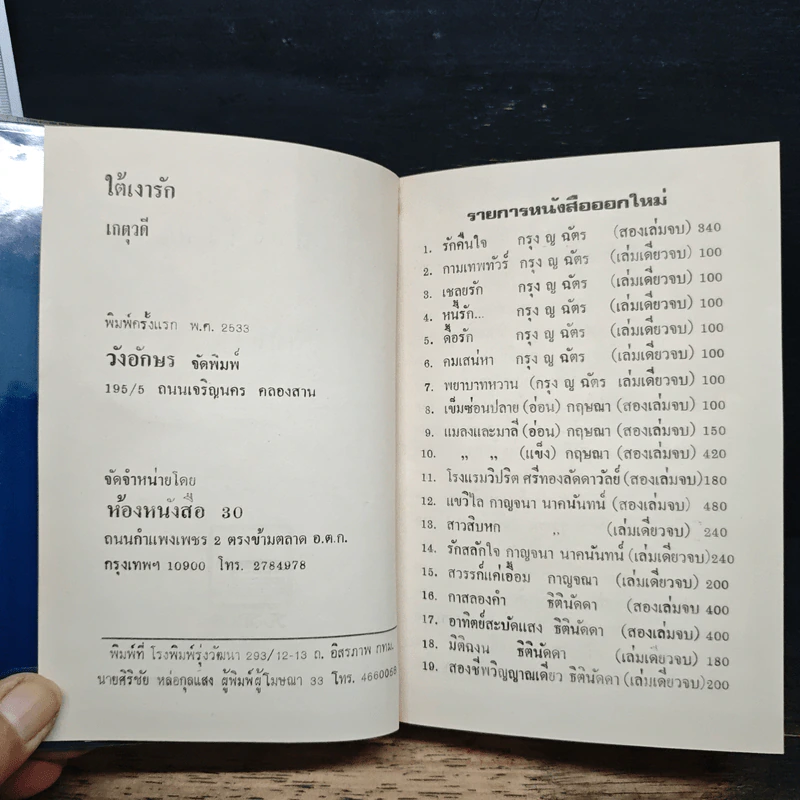 ใต้เงารัก
เกตุวดี
พิมพ์ครั้งแรก พ.ศ. 2533
วังอักษร จัดพิมพ์
195/5 ถนนเจริญนคร คลองสาน
จัดจำหน่ายโดย
ห้องหนังสือ 30
ถนนกำแพงเพชร 2 ตรงข้ามตลาด อ.ต.ก.
กรุงเทพฯ 10900 โทร. 2784978
พิมพ์ที่ โรงพิมพ์รุ่งวัฒนา 293/12-13 ถ. อิสรภาพ กทม.
นายศิริชัย หล่อกุลแสง ผู้พิมพ์ผู้โฆษณา 33 โทร. 4660058
รายการหนังสือออกใหม่
1. รักคืนใจ กรุง ญ ฉัตร (สองเล่มจบ) 340
2. กามเทพทัวร์ กรุง ญ ฉัตร (เล่มเดียวจบ) 100
3. เชลยรัก กรุง ญ ฉัตร (เล่มเดียวจบ) 100
4. หนี้รัก... กรุง ญ ฉัตร (เล่มเดียวจบ) 100
5. ดื้อรัก กรุง ญ ฉัตร (เล่มเดียวจบ) 100
6. คมเสน่หา กรุง ญ ฉัตร (เล่มเดียวจบ) 100
7. พยาบาทหวาน (กรุง ญ ฉัตร เล่มเดียวจบ) 100
8. เข็มซ่อนปลาย (อ่อน) กฤษณา (สองเล่มจบ) 100
9. แมลงและมาลี (อ่อน) กฤษณา (สองเล่มจบ) 150
10. ,, ,, (แข็ง) กฤษณา (สองเล่มจบ) 420
11. โรงแรมวิปริต ศรีทองลัดดาวัลย์ (สองเล่มจบ) 180
12. แขวิไล กาญจนา นาคนันทน์ (สองเล่มจบ) 480
13. สาวสิบหก ,, (เล่มเดียวจบ) 240
14. รักสลักใจ กาญจนา นาคนันทน์ (เล่มเดียวจบ) 240
15. สวรรก์แค่เอื้อม กาญจณา (เล่มเดียวจบ) 200
16. กาสลองคำ ธิตินัดดา (สองเล่มจบ 400
17. อาทิตย์สะบัดแสง ธิตินัดดา (สองเล่มจบ) 400
18. มิติฉงน ธิตินัดดา (เล่มเดียวจบ) 180
19. สองชีพวิญญาณเดียว ธิตินัดดา (เล่มเดียวจบ) 200